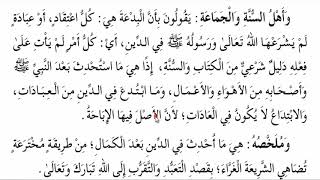 وَأَهْلُ السُّنَّةِ وَالْجَمَاعَةِ: يَقُولُونَ بِأَنَّ الْبِدْعَةَ هِيَ: كُلُّ اعْتِقَادٍ، أَوْ عِبَادَةٍ
لَمْ يَشْرَعْهَا اللهُ تَعَالَى وَرَسُولُهُ ﷺ فِي الدِّينِ، أَيْ: كُلُّ أَمْرٍ لَمْ يَأْتِ عَلَى
فِعْلِهِ دَلِيلٌ شَرْعِيٌّ مِنَ الْكِتَابِ وَالسُّنَّةِ، إِذًا هِيَ مَا اسْتُحْدِثَ بَعْدَ النَّبِيِّ ﷺ
وَأَصْحَابِهِ مِنَ الْأَهْوَاءِ وَالْأَعْمَالِ، وَمَا ابْتُدِعَ فِي الدِّينِ مِنَ الْعِبَادَاتِ،
وَالِابْتِدَاعُ لَا يَكُونُ فِي الْعَادَاتِ؛ لِأَنَّ الْأَصْلَ فِيهَا الْإِبَاحَةُ.
وَمُلَخَّصُهُ: هِيَ مَا أُحْدِثَ فِي الدِّينِ بَعْدَ الْكَمَالِ؛ مِنْ طَرِيقَةٍ مُخْتَرَعَةٍ
تُضَاهِي الشَّرِيعَةَ الْغَرَّاءَ؛ بِقَصْدِ التَّعَبُّدِ وَالتَّقَرُّبِ إِلَى اللهِ تَبَارَكَ وَتَعَالَى.